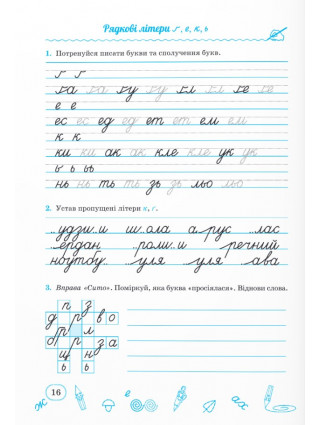 Рядкові літери г, е, к, ь
1. Потренуйся писати букви та сполучення букв.
г г
га га гу гу гл гл ге ге
е е
ес ес ед ед ет ет ем ем
к к
ки ки ак ак кле кле ук ук
ь ь ьь
нь нь ть ть зь зь льо льо
2. Устав пропущені літери к, г.
..удзи..и ш..ола а..рус ..лас
..ердан ..роли..и ..речний
ноутбу.. ..уля ..уля ..ава
3. Вправа «Сито». Поміркуй, яка буква «просіялася». Віднови слова.
п з
д р в о
т л
б р з а
щ н
ь ь
16